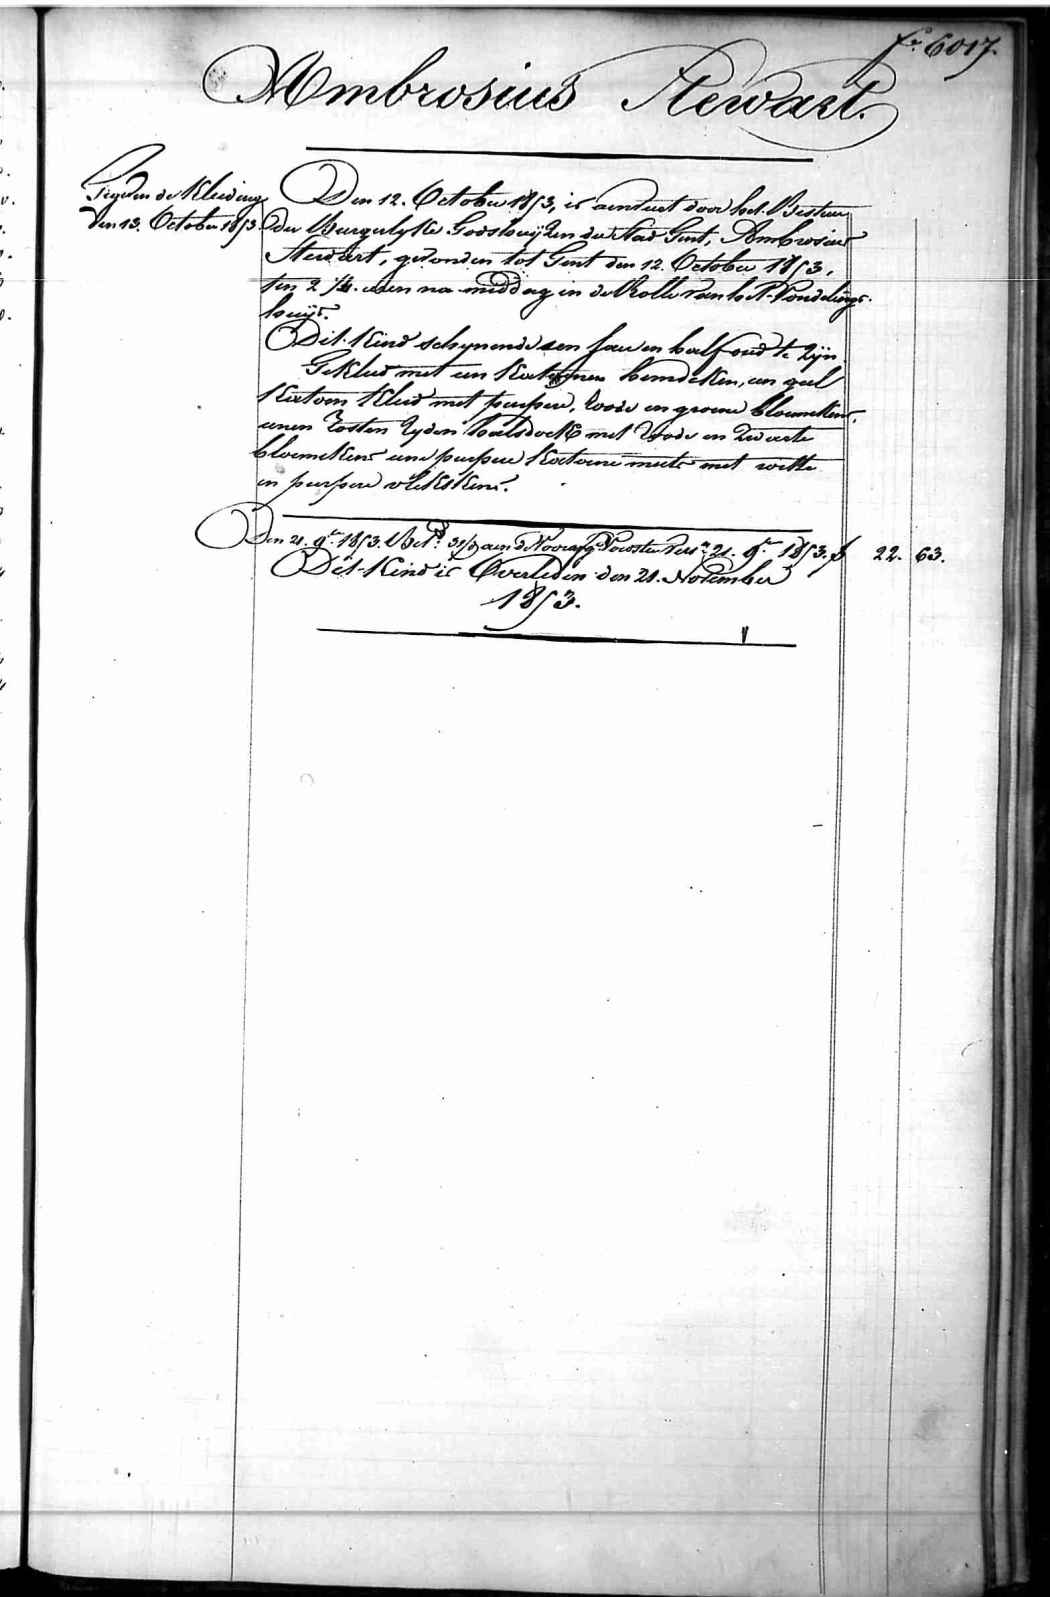 fo. 6017.
Ambrosius Stewart.
Gegeven de Kleeding
den 13. October 1853.
Den 12. October 1853, is aenveert door het Bestuer
der Burgerlyke Godshuyzen der Stad Gent, Ambrosius
Stewart, gevonden tot Gent den 12. October 1853,
ten 2 1/4. uren na middag in de Rolle van het Vondelings-
huys.
Dit Kind schynende een jaer en half oud te zyn
Gekleed met een Katoenen hemdeken, een geel
Katoen Kleed met purpere, roode en groene bloemekens,
eenen rosten zyden halsdoek met roode en zwarte
bloemekens eene purpere Katoene muts met witte
en purpere vlekskens.
Den 21. 9er. 1853. Bet. aen 21. 9er 1853. f 22. 63.
Dit Kind is Overleden den 21. November
1853.